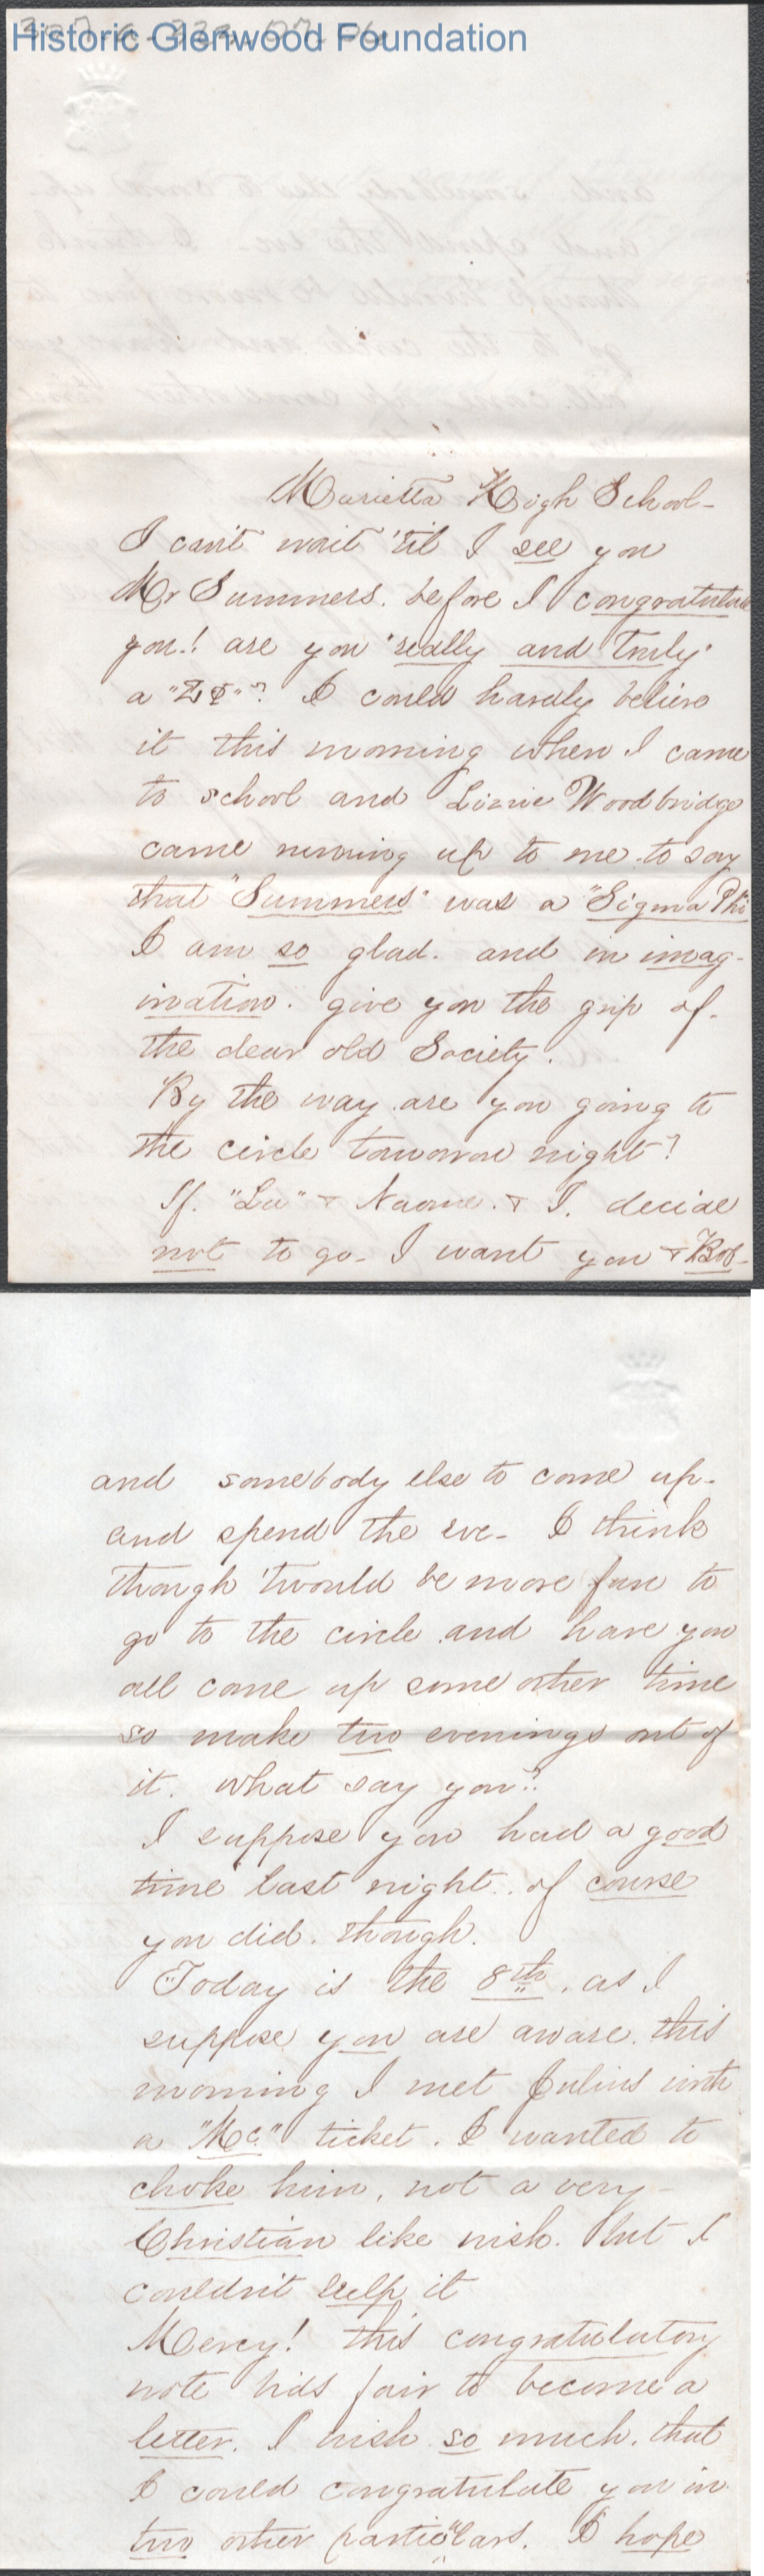 Historic Glenwood Foundation
Marietta High School -
I can't wait 'til I see you
Mr Summers. before I congratulate
you.! are you "really and truly"
a "ΣΦ"? I could hardly believe
it this morning when I came
to school and Lizzie Woodbridge
came running up to me to say
that "Summers" was a "Sigma Phi"
I am so glad. and in imag-
ination. give you the grip of.
the dear old Society.
By the way are you going to
the circle tomorrow night?
If. "Lu" + Naomie. + I. decide
not to go - I want you + Bob -
and somebody else to come up.
and spend the eve - I think
though 'twould be more fun to
go to the circle and have you
all come up some other time
so make two evenings out of
it. what say you?
I suppose you had a good
time last night. of course
you did. though.
Today is the 8th. as I
suppose you are aware. this
morning I met Julius with
a "Mc" ticket. I wanted to
choke him, not a very -
Christian like wish. but I
couldn't help it
Mercy! this congratulatory
note bids fair to become a
letter. I wish so much. that
I could congratulate you in
two other particulars. I hope